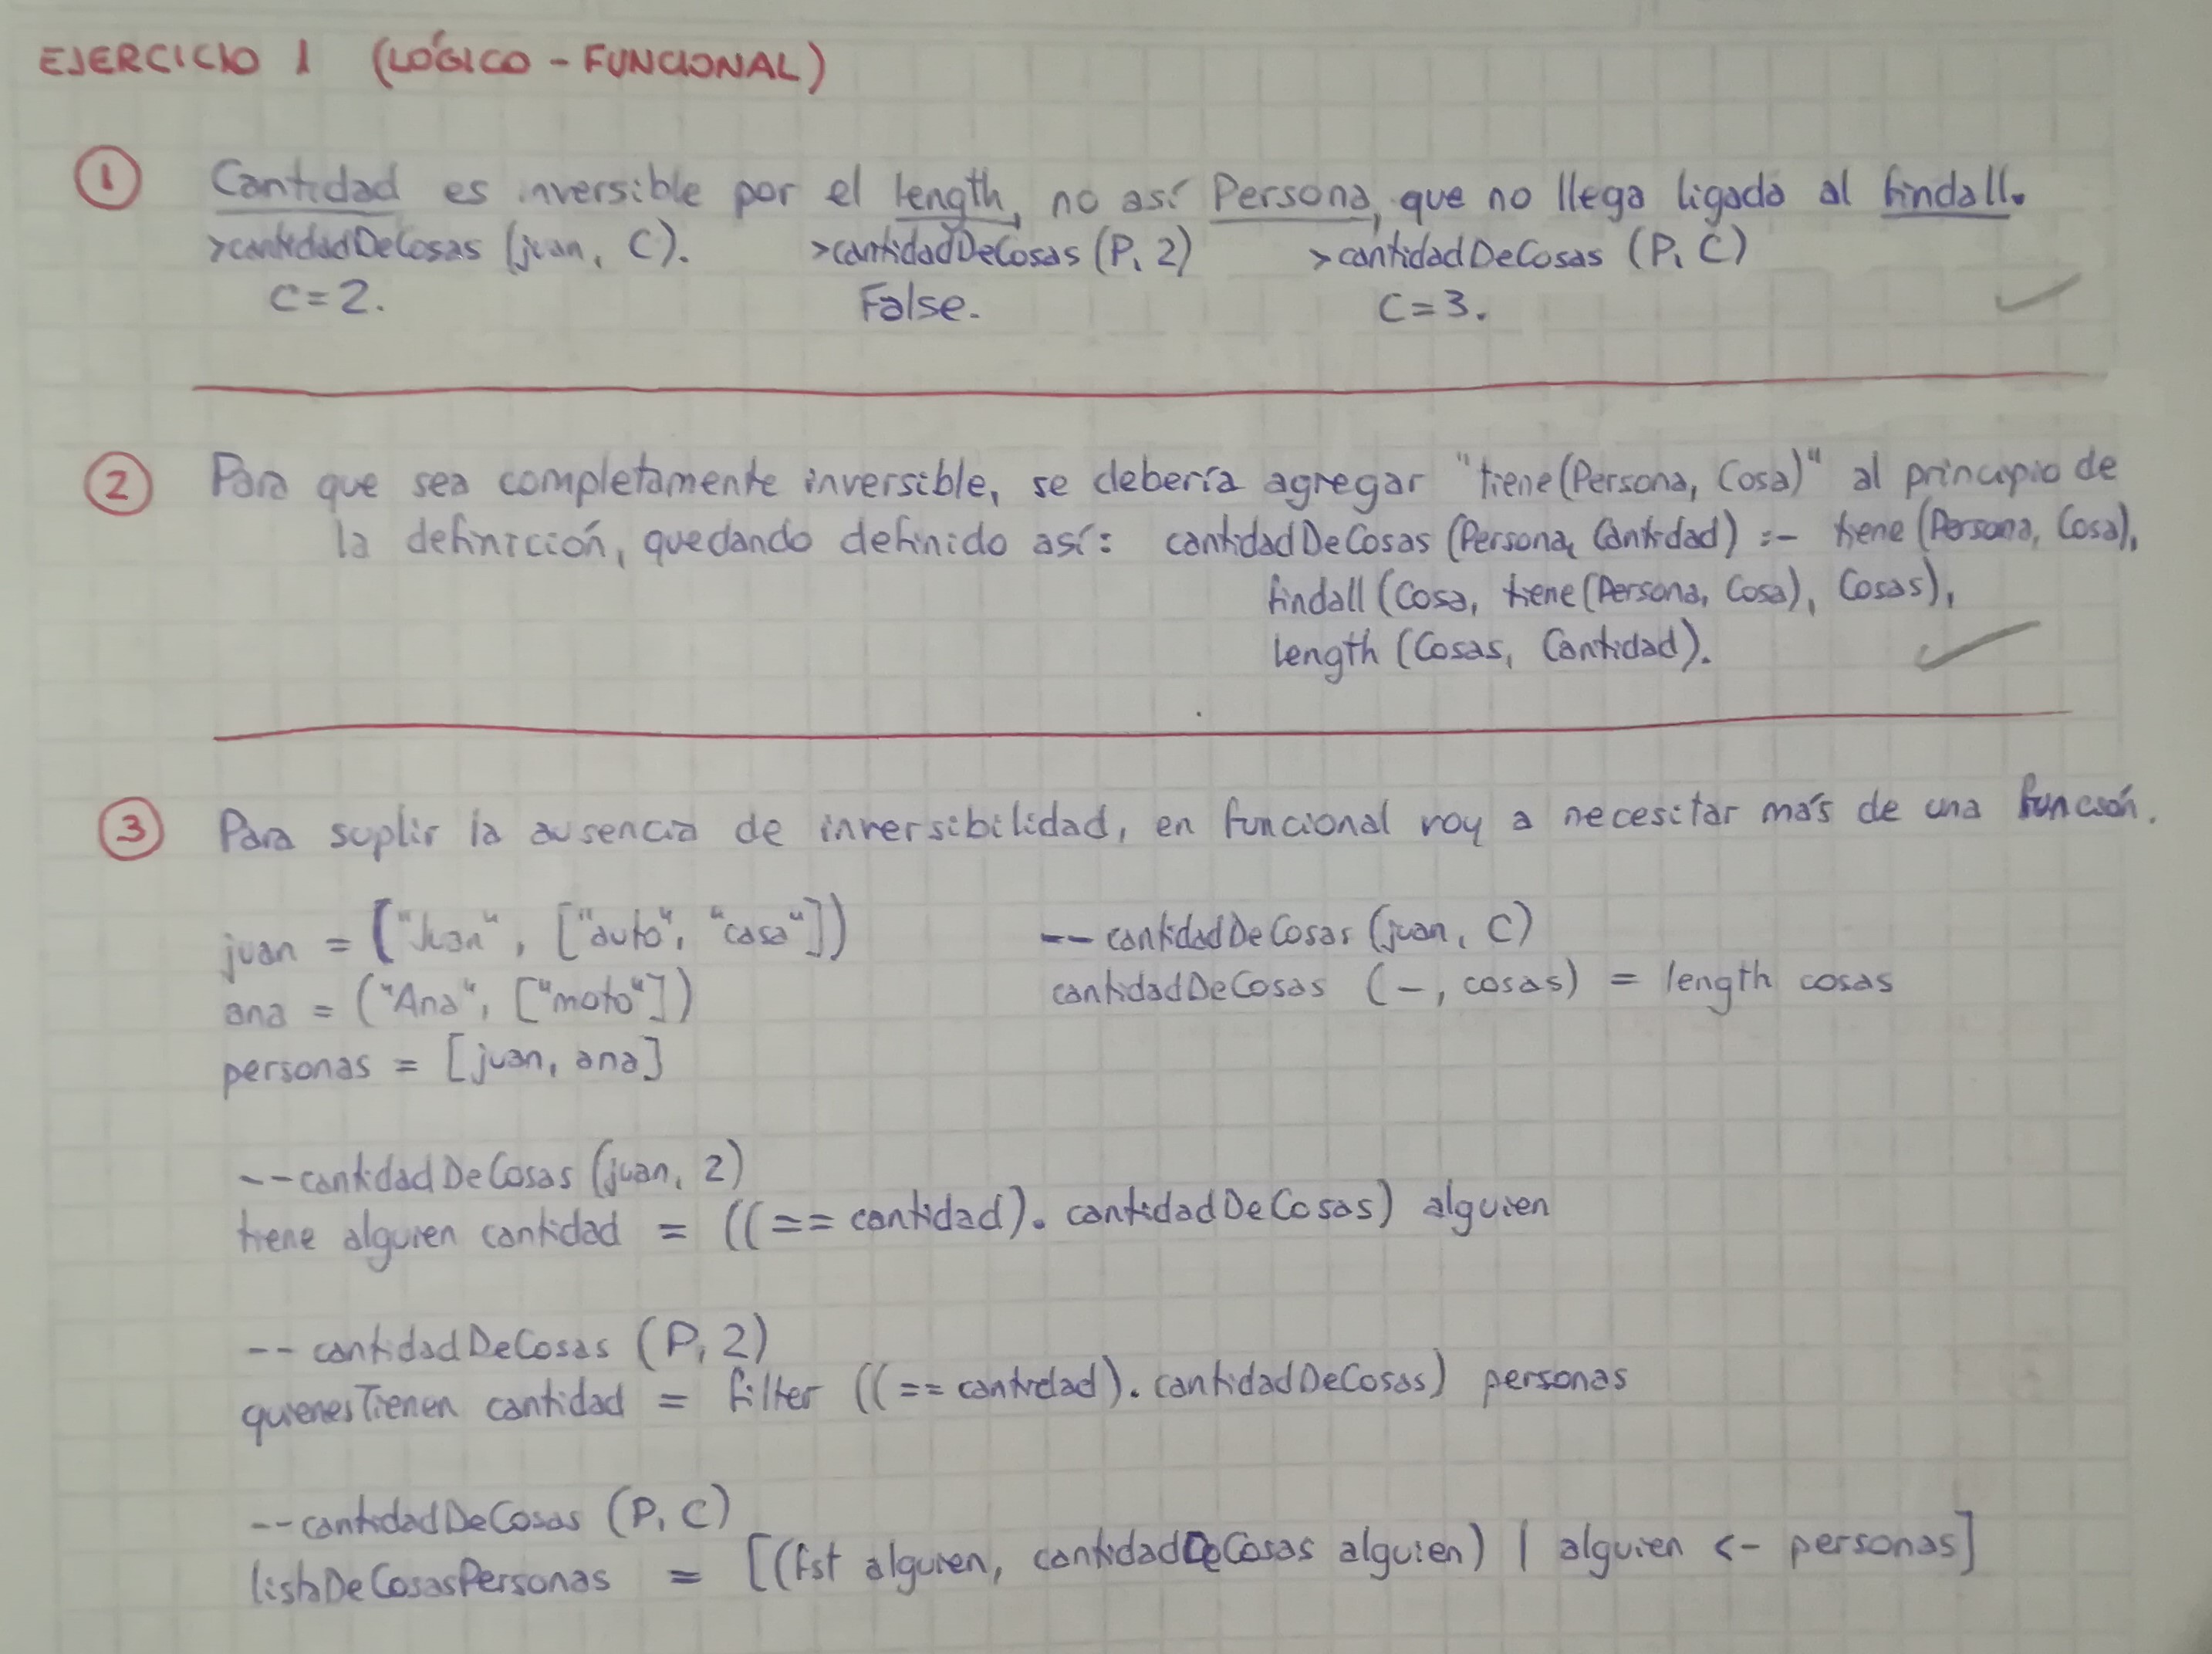 EJERCICIO 1 (LÓGICO - FUNCIONAL)
1 Cantidad es inversible por el length, no así Persona, que no llega ligada al findall.
>cantidadDeCosas (juan, C). >cantidadDeCosas (P, 2) >cantidadDeCosas (P, C)
C=2. False. C=3.
2 Para que sea completamente inversible, se debería agregar "tiene(Persona, Cosa)" al principio de
la definición, quedando definido así: cantidadDeCosas (Persona, Cantidad) :- tiene (Persona, Cosa),
findall (Cosa, tiene (Persona, Cosa), Cosas),
length (Cosas, Cantidad).
3 Para suplir la ausencia de inversibilidad, en funcional voy a necesitar más de una función.
juan = ("Juan", ["auto", "casa"]) -- cantidadDeCosas (juan, C)
cantidadDeCosas (_, cosas) = length cosas
ana = ("Ana", ["moto"])
personas = [juan, ana]
--cantidadDeCosas (juan, 2)
tiene alguien cantidad = ((== cantidad). cantidadDeCosas) alguien
-- cantidadDeCosas (P, 2)
quienesTienen cantidad = filter ((== cantidad). cantidadDeCosas) personas
--cantidadDeCosas (P, C)
listaDeCosasPersonas = [(fst alguien, cantidadDeCosas alguien) | alguien <- personas]